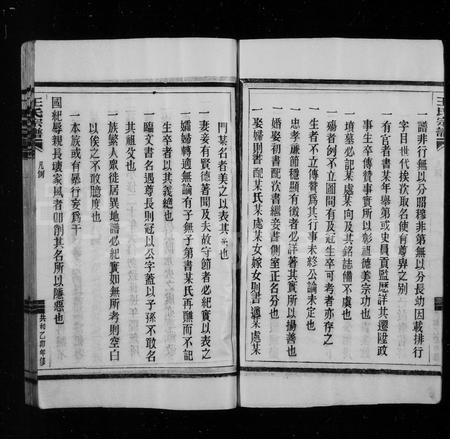 王氏宗譜
譜非行無以分昭穆非第無以分長幼因載排行
字目世代挨次取名使有尊卑之别
一有官者書某年舉第或史員貢監歷詳其遷陞政
事生卒傳贊事實所以彰祖德美宗功也
一墳墓必記某處某向及其銘誌備不虞也
一殤者例不立圖間有及冠生卒可考者亦存之
一生者不立傳贊爲其行事未終公論未定也
一忠孝廉節穩顯有徵者必詳著其實所以揚善也
一婚娶初書配次欧書繼妾書側室正名分也
一娶婦則書配某氏某處某女嫁女則書適某處某
門某名者美之以表其
也
一妻妾有賢德著聞及夫故守節者必紀實以表之
一孀婦轉適無論有子無子第書某氏再醮而不記
生卒者以其義絶也
一臨文書名遇尊長則冠以公字蓋以子孫不敢名
其祖父也
一族繁人眾徙居異地譜必紀實如無所考則空白
以俟之不敢臆度也
一本族或有暴行妄爲干
國紀辱親長壞家風者卽削其名所以隱惡也
王氏宗譜
凡例
共和乙卯年修